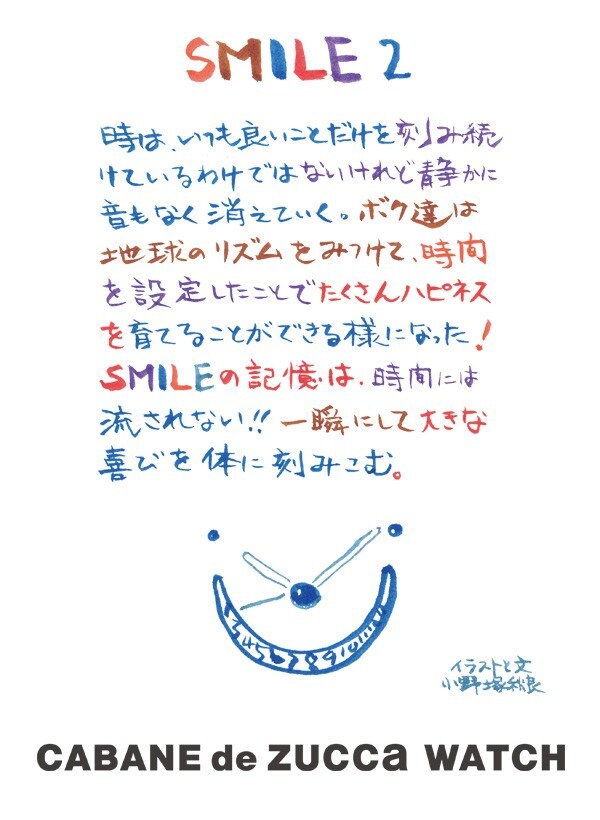 SMILE 2
時は、いつも良いことだけを刻み続
けているわけではないけれど静かに
音もなく消えていく。ボク達は
地球のリズムをみつけて、時間
を設定したことでたくさんハピネス
を育てることができる様になった!
SMILEの記憶は、時間には
流されない!! 一瞬にして大きな
喜びを体に刻みこむ。
イラストと文
小野塚秋良
CABANE de ZUCCa WATCH